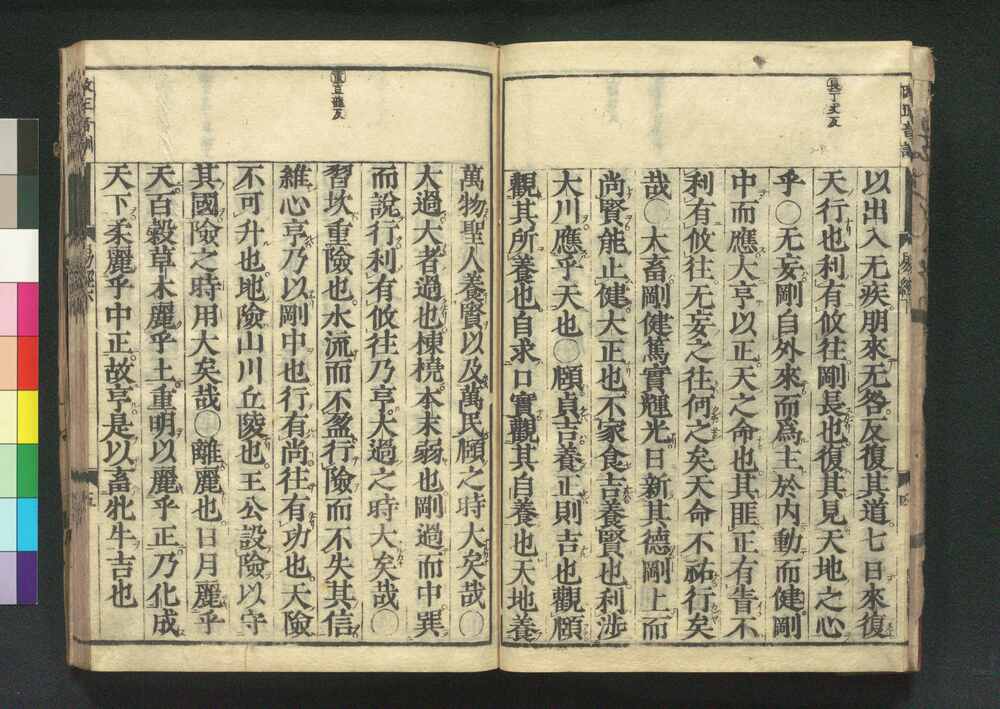 長丁丈反
以出入无疾朋來无咎反復其道七日來復
天行也利有攸往剛長也復其見天地之心
乎〇无妄剛自外來而爲主於內動而健剛
中而應大亨以正天之命也其匪正有眚不
利有攸往无妄之往何之矣天命不祐行矣
哉〇大畜剛健篤實輝光日新其德剛上而
尚賢能止健大正也不家食吉養賢也利涉
大川應乎天也〇頤貞吉養正則吉也觀頤
觀其所養也自求口實觀其自養也天地養
萬物聖人養賢以及萬民頤之時大矣哉〇
大過大者過也棟橈本末弱也剛過而中巽
而說行利有攸往乃亨大過之時大矣哉〇
習坎重險也水流而不盈行險而不失其信
維心亨乃以剛中也行有尚往有功也天險
不可升也地險山川丘陵也王公設險以守
其國險之時用大矣哉〇離麗也日月麗乎
天百穀草木麗乎土重明以麗乎正乃化成
天下柔麗乎中正故亨是以畜牝牛吉也